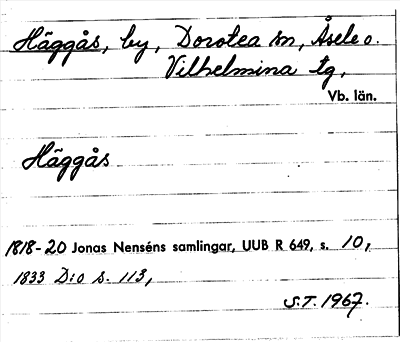 Häggås, by, Dorotea sn, Åsele o.
Vilhelmina tg,
Vb. län.
Häggås
1818-20 Jonas Nenséns samlingar, UUB R 649, s. 10,
1833 D:o s. 113,
S.T. 1967.